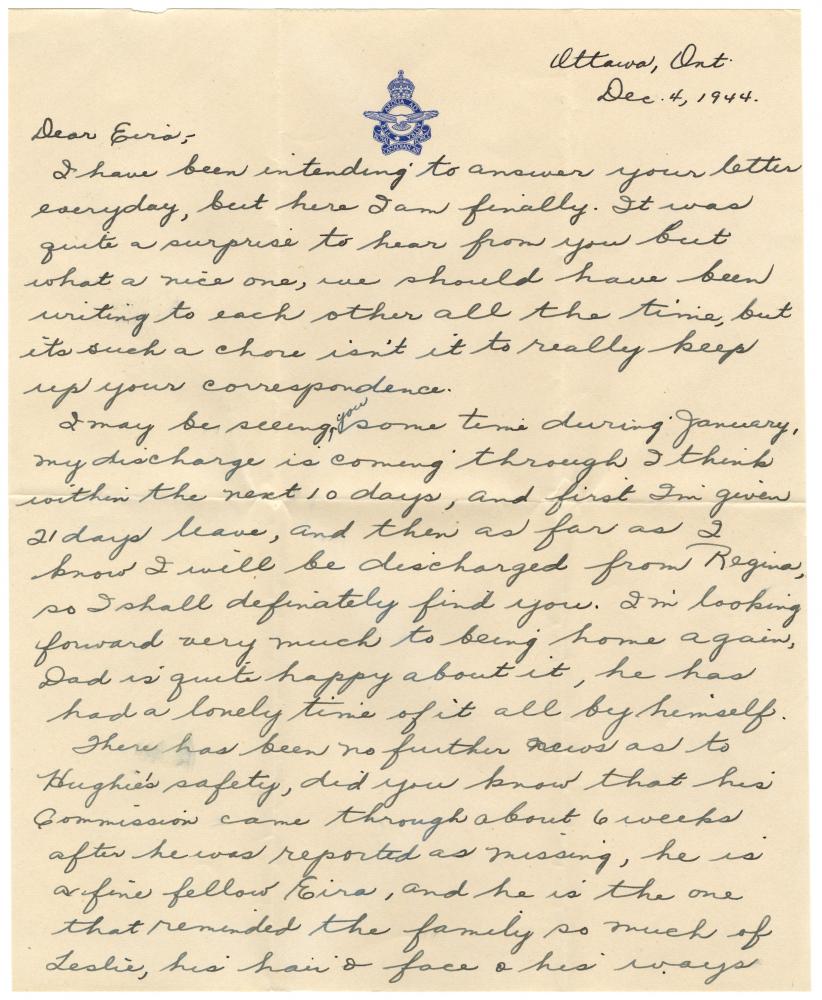 Ottawa, Ont.
Dec. 4, 1944.
Dear Eira,-
I have been intending to answer your letter
everyday, but here I am finally. It was
quite a surprise to hear from you but
what a nice one, we should have been
writing to each other all the time, but
its such a chore isn't it to really keep
up your correspondence.
I may be seeing you some time during January,
my discharge is coming through I think
within the next 10 days, and first I'm given
21 days leave, and then as far as I
know I will be discharged from Regina,
so I shall definately find you. I'm looking
forward very much to being home again,
Dad is quite happy about it, he has
had a lonely time of it all by himself.
There has been no further news as to
Hughie's safety, did you know that his
Commission came through about 6 weeks
after he was reported as missing, he is
a fine fellow Eira, and he is the one
that reminded the family so much of
Leslie, his hair & face & his ways